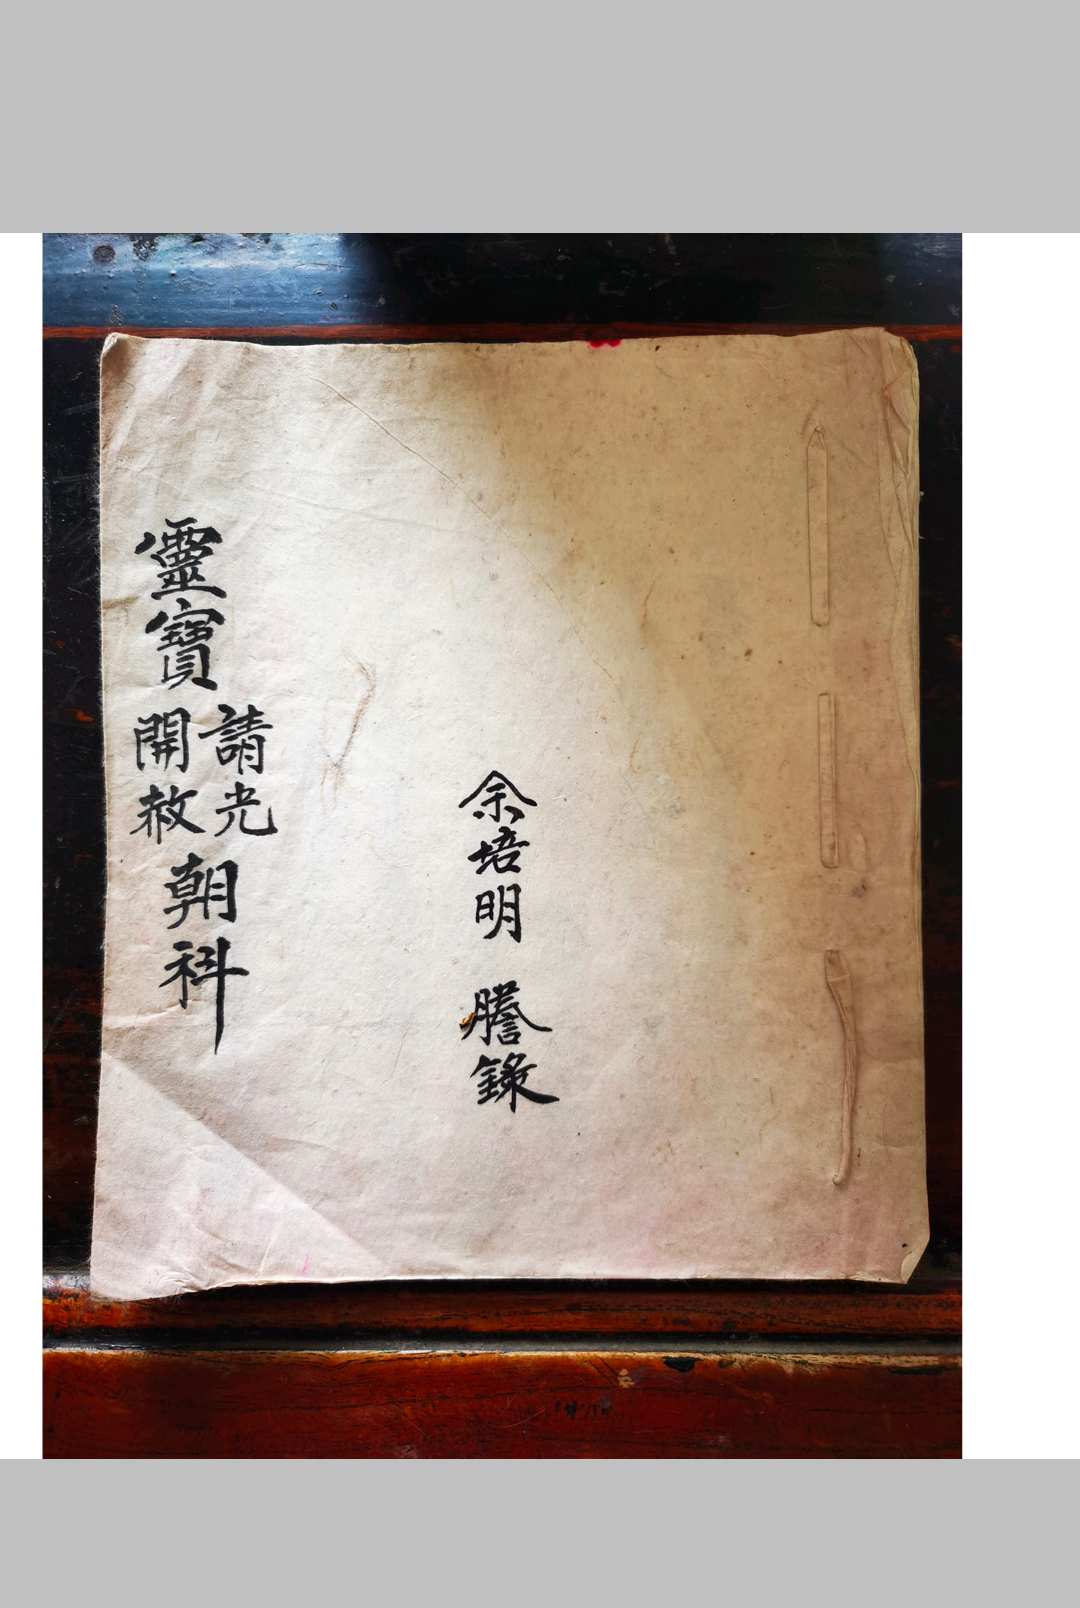 靈寶請光開赦朝科
余培明 謄錄